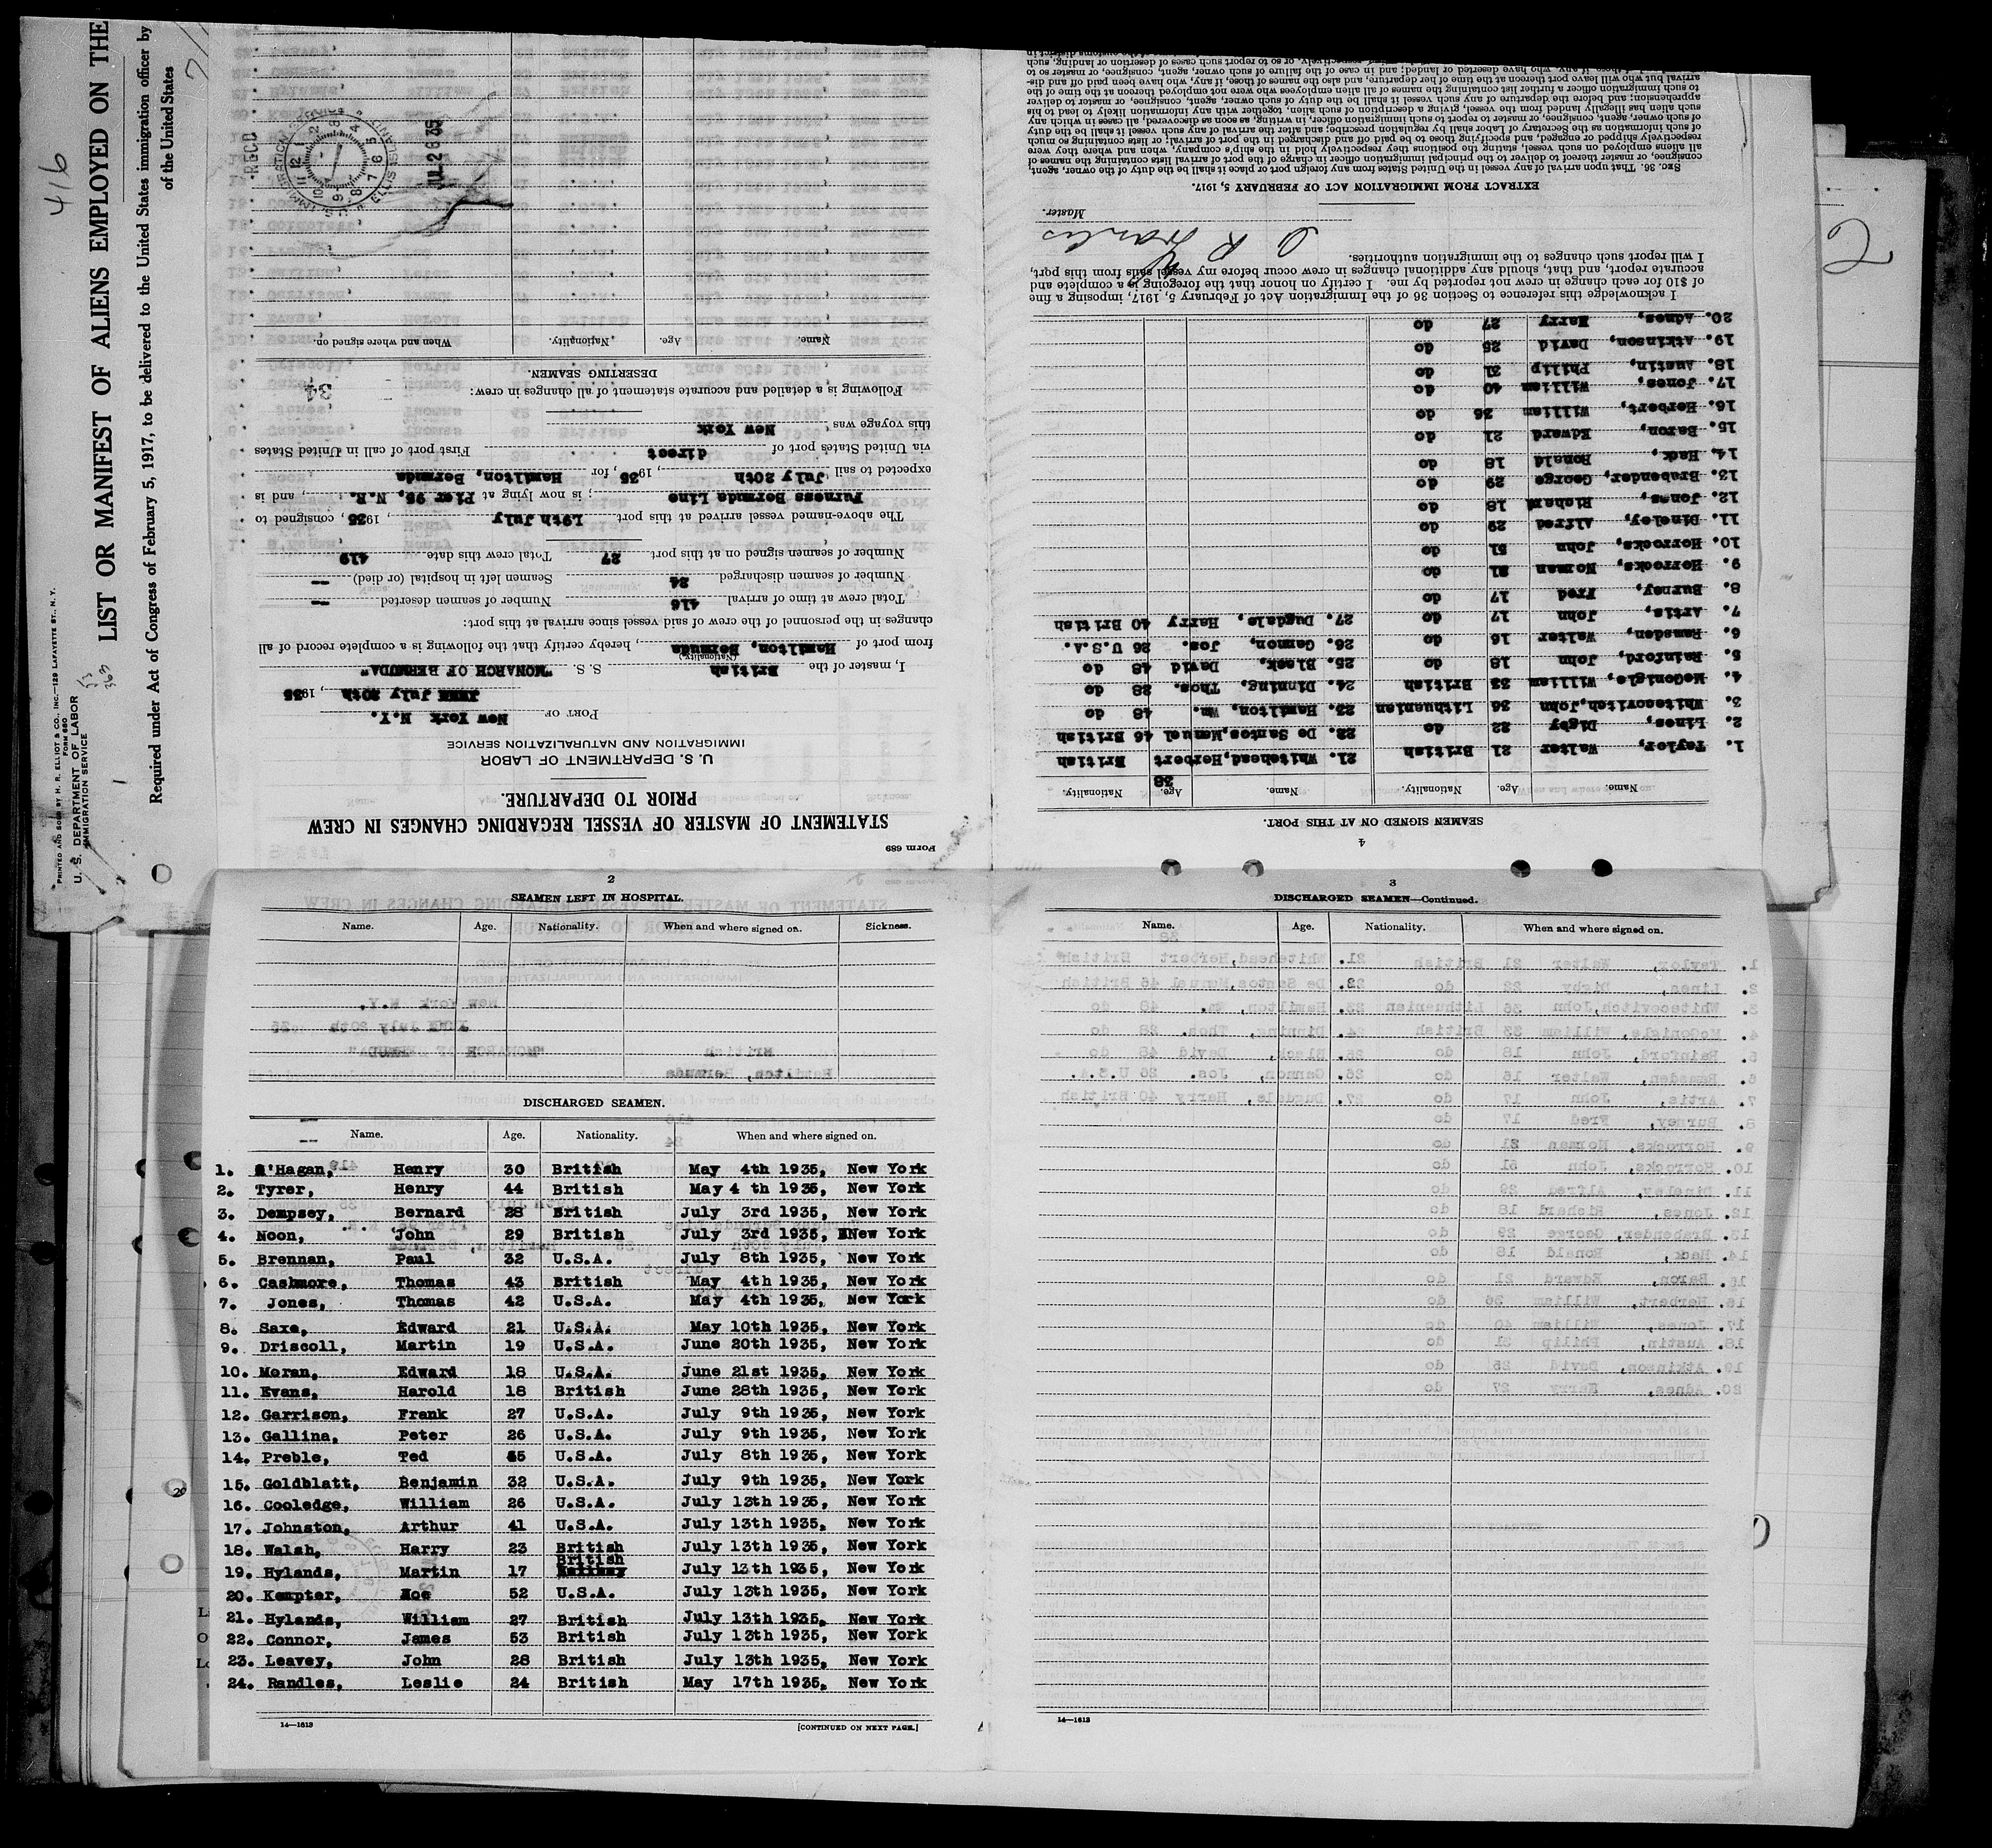 416
LIST OR MANIFEST OF ALIENS EMPLOYED ON THE
Required under Act of Congress of February 5, 1917, to be delivered to the United States immigration officer by
of the United States
PRINTED AND SOLD BY H. R. ELLIOT & CO., INC.—129 LAFAYETTE ST., N. Y.
FORM 680
U. S. DEPARTMENT OF LABOR
IMMIGRATION SERVICE
53
363
Form 689
STATEMENT OF MASTER OF VESSEL REGARDING CHANGES IN CREW
PRIOR TO DEPARTURE.
U. S. DEPARTMENT OF LABOR
IMMIGRATION AND NATURALIZATION SERVICE
PORT OF New York N.Y.
July 20th, 1935
I, master of the British S. S. "MONARCH OF BERMUDA"
(Nationality)
from port of Hamilton, Bermuda, hereby certify that the following is a complete record of all
changes in the personnel of the crew of said vessel since arrival at this port:
Total crew at time of arrival 416 Number of seamen deserted --
Number of seamen discharged 24 Seamen left in hospital (or died) --
Number of seamen signed on at this port 27 Total crew this date 419
The above-named vessel arrived at this port 19th July, 1935, consigned to
Furness Bermuda Line; is now lying at Pier 95, N.R., and is
expected to sail July 20th, 1935, for Hamilton, Bermuda
via United States port of direct First port of call in United States
this voyage was New York
Following is a detailed and accurate statement of all changes in crew:
34
DESERTING SEAMEN.
Name. Age. Nationality. When and where signed on.
REC'D
U.S. IMMIGRATION SERVICE ELLIS ISLAND
JUL 26 35
2
SEAMEN LEFT IN HOSPITAL.
Name. Age. Nationality. When and where signed on. Sickness.
DISCHARGED SEAMEN.
Name. Age. Nationality. When and where signed on.
1. O'Hagan, Henry 30 British May 4th 1935, New York
2. Tyrer, Henry 44 British May 4 th 1935, New York
3. Dempsey, Bernard 28 British July 3rd 1935, New York
4. Noon, John 29 British July 3rd 1935, New York
5. Brennan, Paul 32 U.S.A. July 8th 1935, New York
6. Cashmore, Thomas 43 British May 4th 1935, New York
7. Jones, Thomas 42 U.S.A. May 4th 1935, New York
8. Saxe, Edward 21 U.S.A. May 10th 1935, New York
9. Driscoll, Martin 19 U.S.A. June 20th 1935, New York
10. Moran, Edward 18 U.S.A. June 21st 1935, New York
11. Evans, Harold 18 British June 28th 1935, New York
12. Garrison, Frank 27 U.S.A. July 9th 1935, New York
13. Gallina, Peter 26 U.S.A. July 9th 1935, New York
14. Preble, Ted U.S.A. July 8th 1935, New York
15. Goldblatt, Benjamin 32 U.S.A. July 9th 1935, New York
16. Cooledge, William 26 U.S.A. July 13th 1935, New York
17. Johnston, Arthur 41 U.S.A. July 13th 1935, New York
18. Walsh, Harry 23 British July 13th 1935, New York
19. Hylands, Martin 17 British July 13th 1935, New York
20. Kempter, Moe 52 U.S.A. July 13th 1935, New York
21. Hylands, William 27 British July 13th 1935, New York
22. Connor, James 53 British July 13th 1935, New York
23. Leavey, John 28 British July 13th 1935, New York
24. Randles, Leslie 24 British May 17th 1935, New York
14—1613 [CONTINUED ON NEXT PAGE.]
3
DISCHARGED SEAMEN—Continued.
Name. Age. Nationality. When and where signed on.
14—1613
4
SEAMEN SIGNED ON AT THIS PORT.
Name. Age. Nationality. Name. Age. Nationality.
1. Taylor, Walter 21 British 21. Whitehead, Herbert 38 British
2. Lines, Digby 22 do 22. De Santos, Manual 46 British
3. Whitecovitch, John 36 Lithuanian 23. Hamilton, Wm. 48 do
4. McGonigle, William 33 British 24. Dinning, Thos. 28 do
5. Rainford, John 18 do 25. Black, David 48 do
6. Ramsden, Walter 16 do 26. Gannon, Jos. 26 U.S.A.
7. Artis, John 17 do 27. Dugdale, Harry 40 British
8. Burney, Fred 17 do
9. Horrocks, Norman 21 do
10. Horrocks, John 51 do
11. Dinsley, Alfred 29 do
12. Jones, Richard 18 do
13. Brabender, George 29 do
14. Hack, Ronald 18 do
15. Baron, Edward 21 do
16. Herbert, William 36 do
17. Jones, William 40 do
18. Austin, Philip 31 do
19. Atkinson, David 25 do
20. Adnes, Harry 27 do
I acknowledge this reference to Section 36 of the Immigration Act of February 5, 1917, imposing a fine
of $10 for each change in crew not reported by me. I certify on honor that the foregoing is a complete and
accurate report, and that, should any additional changes in crew occur before my vessel sails from this port,
I will report such changes to the immigration authorities.
Master.
EXTRACT FROM IMMIGRATION ACT OF FEBRUARY 5, 1917.
SEC. 36. That upon arrival of any vessel in the United States from any foreign port or place it shall be the duty of the owner, agent,
consignee, or master thereof to deliver to the principal immigration officer in charge of the port of arrival lists containing the names of
all aliens employed on such vessel, stating the positions they respectively hold in the ship's company, when and where they were
respectively shipped or engaged, and specifying those to be paid off and discharged in the port of arrival; or lists containing so much
of such information as the Secretary of Labor shall by regulation prescribe; and after the arrival of any such vessel it shall be the duty
of such owner, agent, consignee, or master to report to such immigration officer, in writing, as soon as discovered, all cases in which any
such alien has illegally landed from the vessel, giving a description of such alien, together with any information likely to lead to his
apprehension; and before the departure of any such vessel it shall be the duty of such owner, agent, consignee, or master to deliver
to such immigration officer a further list containing the names of all alien employees who were not employed thereon at the time of the
arrival but who will leave port thereon at the time of her departure, and also the names of those, if any, who have been paid off and dis-
charged, and of those, if any, who have deserted or landed; and in case of the failure of such owner, agent, consignee, or master so to